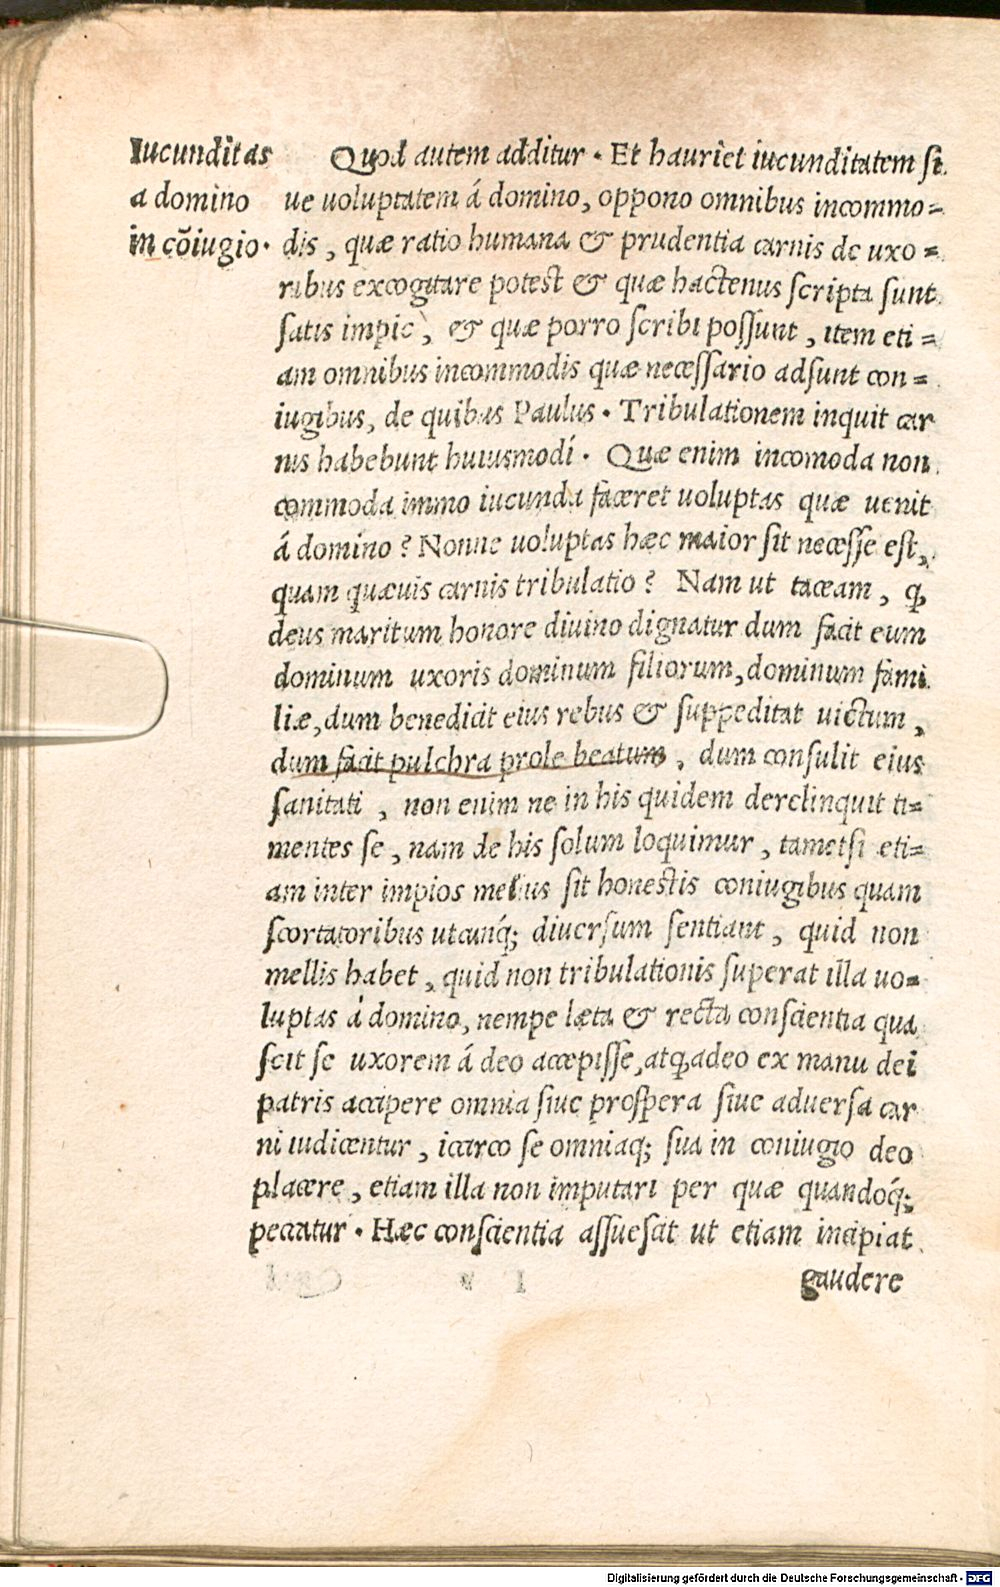 Iucunditas
a domino
in cõiugio·
Quod autem additur · Et hauriet iucunditatem si
ue uoluptatem á domino, oppono omnibus incommo=
dis, quæ ratio humana & prudentia carnis de uxo=
ribus excogitare potest & quæ hactenus scripta sunt
satis impie, & quæ porro scribi possunt, item eti=
am omnibus incommodis quæ necessario adsunt con=
iugibus, de quibus Paulus · Tribulationem inquit car
nis habebunt huiusmodi · Quæ enim incomoda non
commoda immo iucunda faceret uoluptas quæ uenit
á domino? Nonne uoluptas hæc maior sit necesse est,
quam quæuis carnis tribulatio? Nam ut taceam, ꝙ
deus maritum honore diuino dignatur dum facit eum
dominum uxoris dominum filiorum, dominum fami
liæ, dum benedicit eius rebus & suppeditat uictum,
dum facit pulchra prole beatum, dum consulit eius
sanitati, non enim ne in his quidem derelinquit ti=
mentes se, nam de his solum loquimur, tametsi eti=
am inter impios melius sit honestis coniugibus quam
scortatoribus utcunq́; diuersum sentiant, quid non
mellis habet, quid non tribulationis superat illa uo=
luptas á domino, nempe læta & recta conscientia qua
scit se uxorem á deo accepisse, atꝙ adeo ex manu dei
patris accipere omnia siue prospera siue aduersa car
ni iudicentur, icirco se omniaq; sua in coniugio deo
placere, etiam illa non imputari per quæ quandoq́;
peccatur · Hæc conscientia assuescit ut etiam incipiat
gaudere
Digitalisierung gefördert durch die Deutsche Forschungsgemeinschaft - DFG